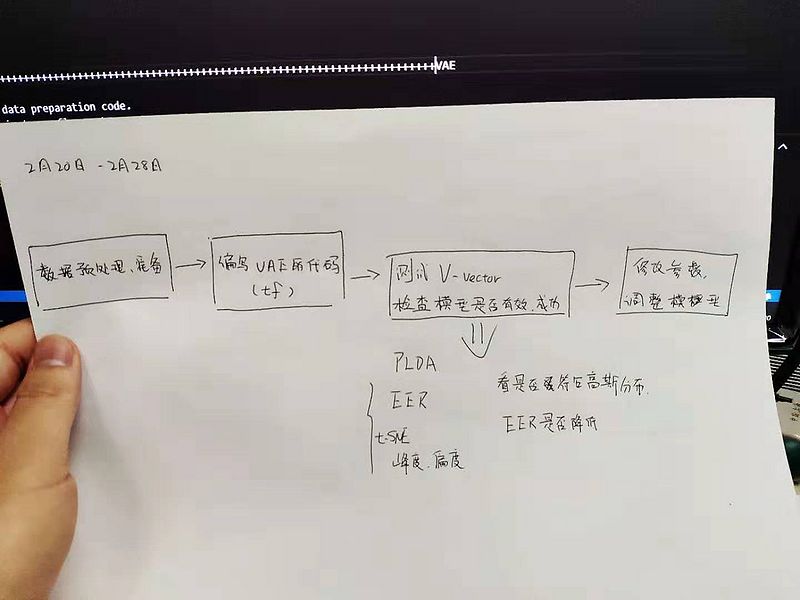 ++++++++++++++++++++++++++++++++++++++++++++++++VAE
data preparation code.
2月20日 - 2月28日
数据预处理、准备
编写VAE的代码
(tf)
测试 V-vector
检查模型是否有效、成功
修改参数,
调整模模型
PLDA
EER
t-SNE
峰度、偏度
看是否更符合高斯分布.
EER是否降低